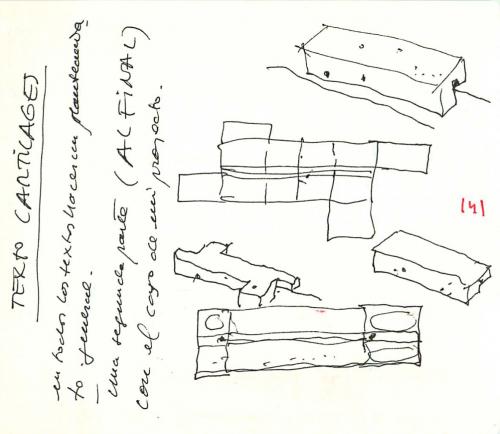 TEXTO CARTILAGES
en todos los textos hacer un planteamien
to general.
una segunda parte (AL FINAL)
con el caso de mi proyecto.
141